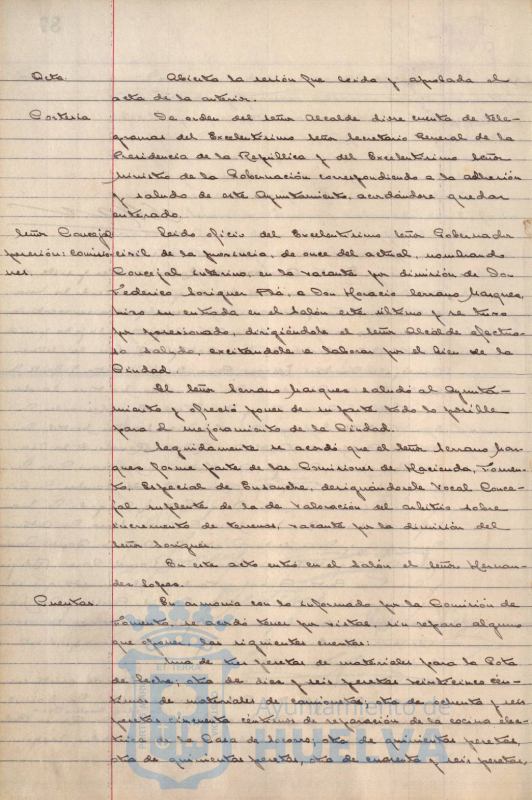 Acta. Abierta la sesión fue leida y aprobada el
acta de la anterior.
Cortesia De orden del señor Alcalde dióse cuenta de tele-
gramas del Excelentísimo señor Secretario General de la
Presidencia de la República y del Excelentísimo señor
Ministro de la Gobernación correspondiendo a la adhesión
y saludo de este Ayuntamiento, acordándose quedar
enterado.
Señor Concejal Leido oficio del Excelentísimo señor Gobernador
posesión: comisio- civil de la provincia, de once del actual, nombrando
nes. Concejal interino, en la vacante por dimisión de Don
Federico Soriguer, a Don Horacio Serrano Marques,
hizo su entrada en el salón este último y se tuvo
por posesionado, dirigiéndole el señor Alcalde afectuo-
so saludo, excitándole a laborar por el bien de la
Ciudad.
El señor Serrano Marques saludó al Ayunta-
miento y ofreció poner de su parte todo lo posible
para el mejoramiento de la Ciudad.
Seguidamente se acordó que el señor Serrano Mar-
ques forme parte de las Comisiones de Hacienda, Fomen-
to, Especial de Ensanche, designándosele Vocal Conce-
jal suplente de la de valoración del arbitrio sobre
incremento de terrenos, vacante por la dimisión del
señor Soriguer.
En este acto entró en el salón el señor Hernan-
dez Lopez.
Cuentas. En armonia con lo informado por la Comisión de
Fomento, se acordó tener por vistas, sin reparo alguno
que oponer, las siguientes cuentas:
Una de tres pesetas de materiales para la Gota
de leche; otra de diez y seis pesetas veinticinco cén-
timos de materiales de carpintería; otra de y seis
pesetas cincuenta céntimos de reparación de la cocina eléc-
trica de la Casa de Socorro; otra de quinientas pesetas,
otra de quinientas pesetas, otra de cuarenta y seis pesetas,
Ayuntamiento de
HUELVA